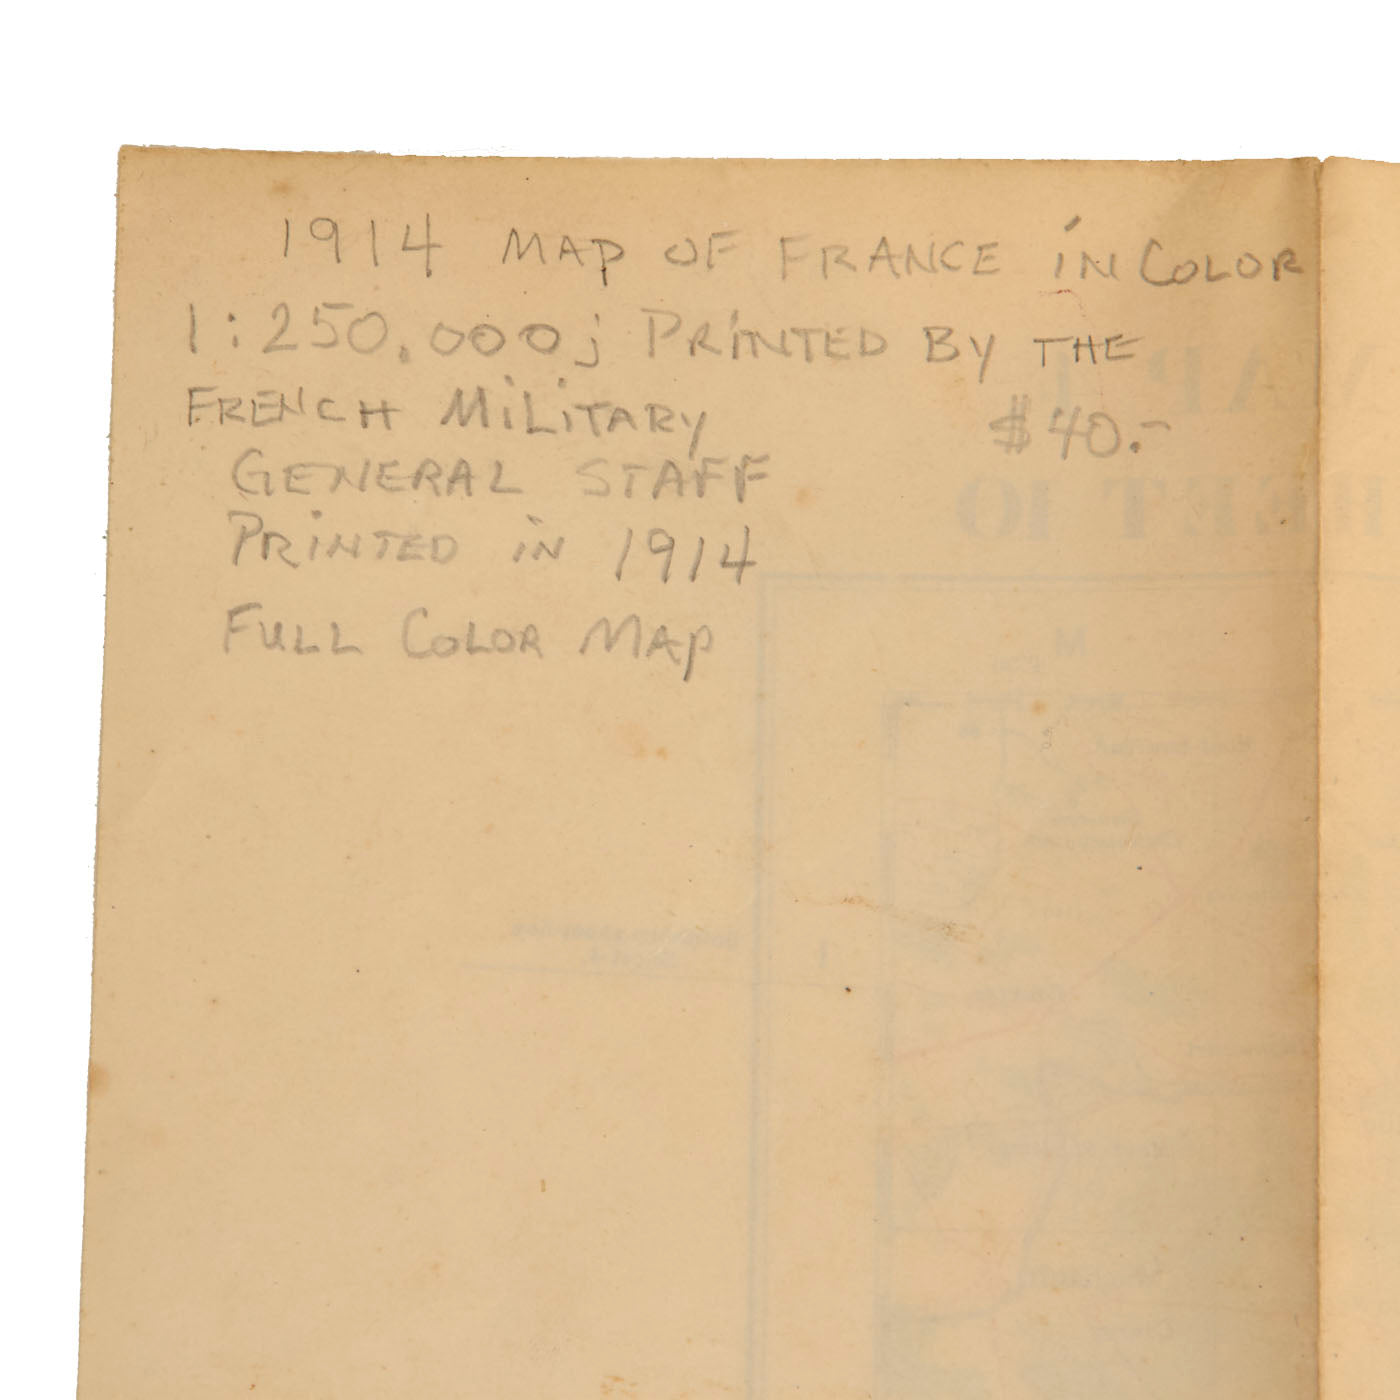 1914 MAP OF FRANCE iN COLOR
1:250,000; PRiNTED BY THE
FRENCH MiLiTARY $40.-
GENERAL STAFF
PRiNTED iN 1914
FULL COLOR MAP